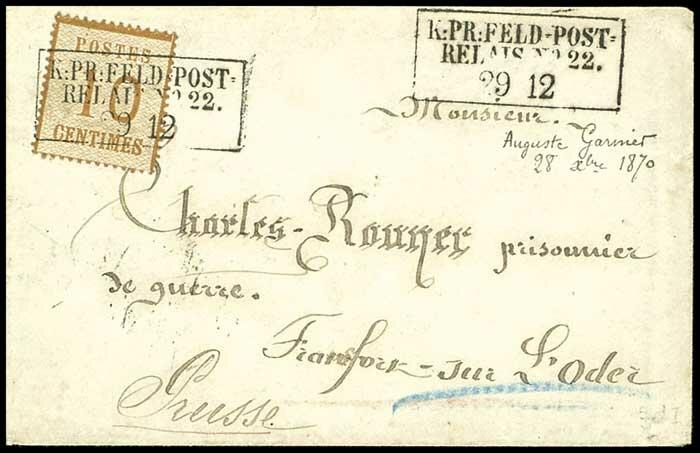 POSTES
10
CENTIMES
K:PR:FELD-POST-
RELAIS No 22.
29 12
K:PR:FELD-POST-
RELAIS No 22.
29 12
Monsieur.
Auguste Garnier
28 xbre 1870
Charles- prisonnier
de guerre.
Francfort-sur L'Oder
Prusse